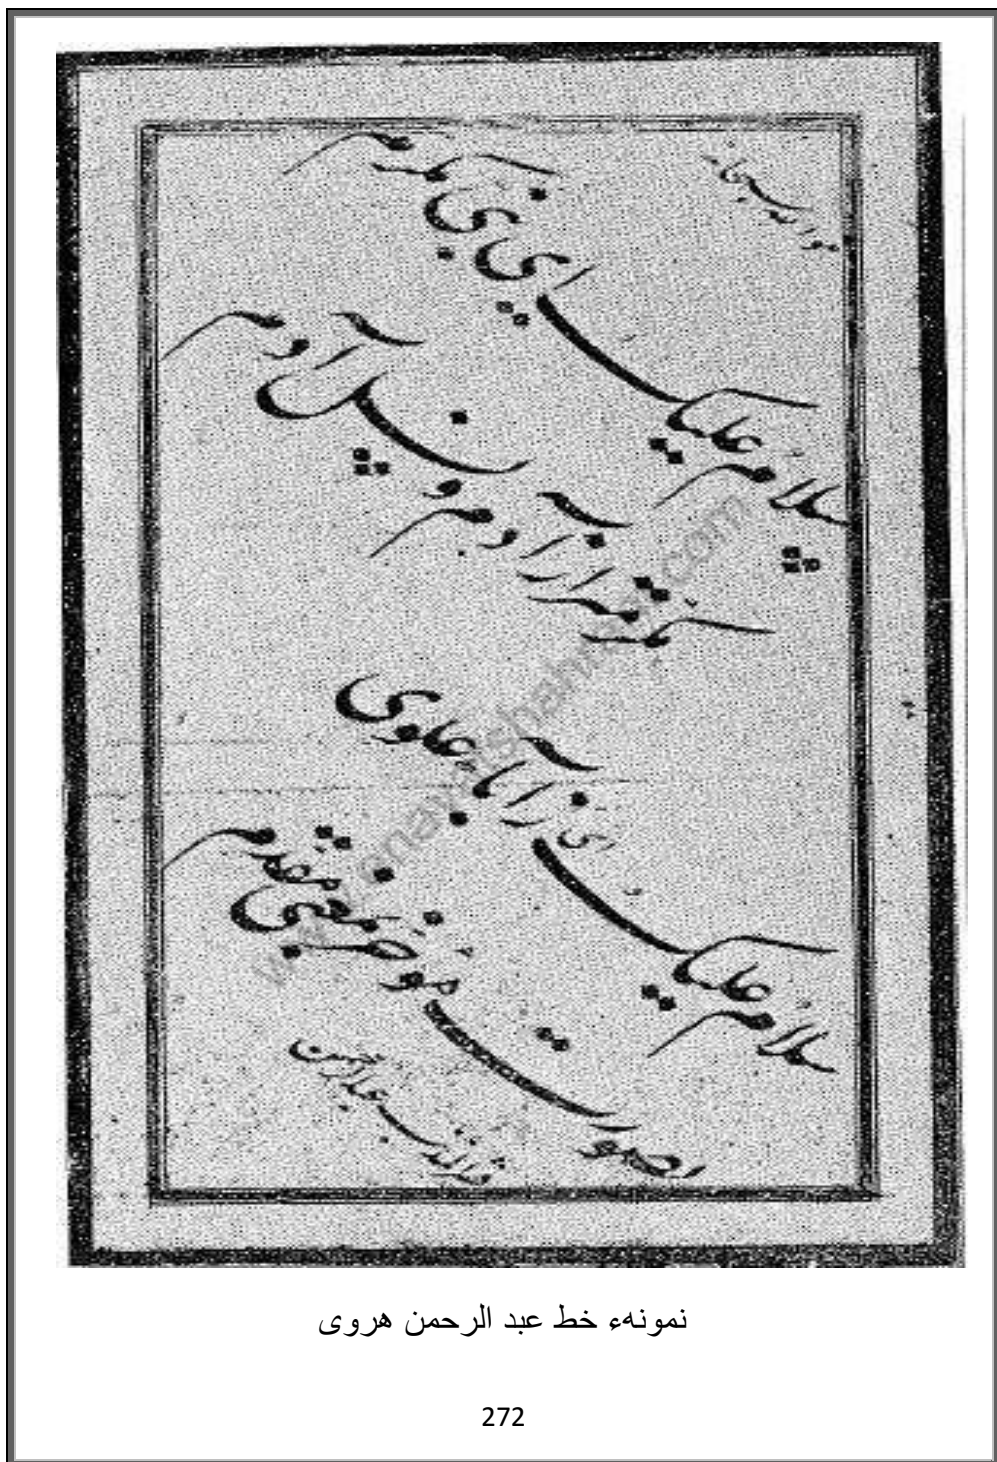 سلام علیک ای نبی مکرم
مکرم تر از آدم و نسل آدم
سلام علیک ای ز آباء علوی
بصورت مؤخر بمعنی مقدم
المذنب عبدالرحمن
نمونهء خط عبد الرحمن هروی
272